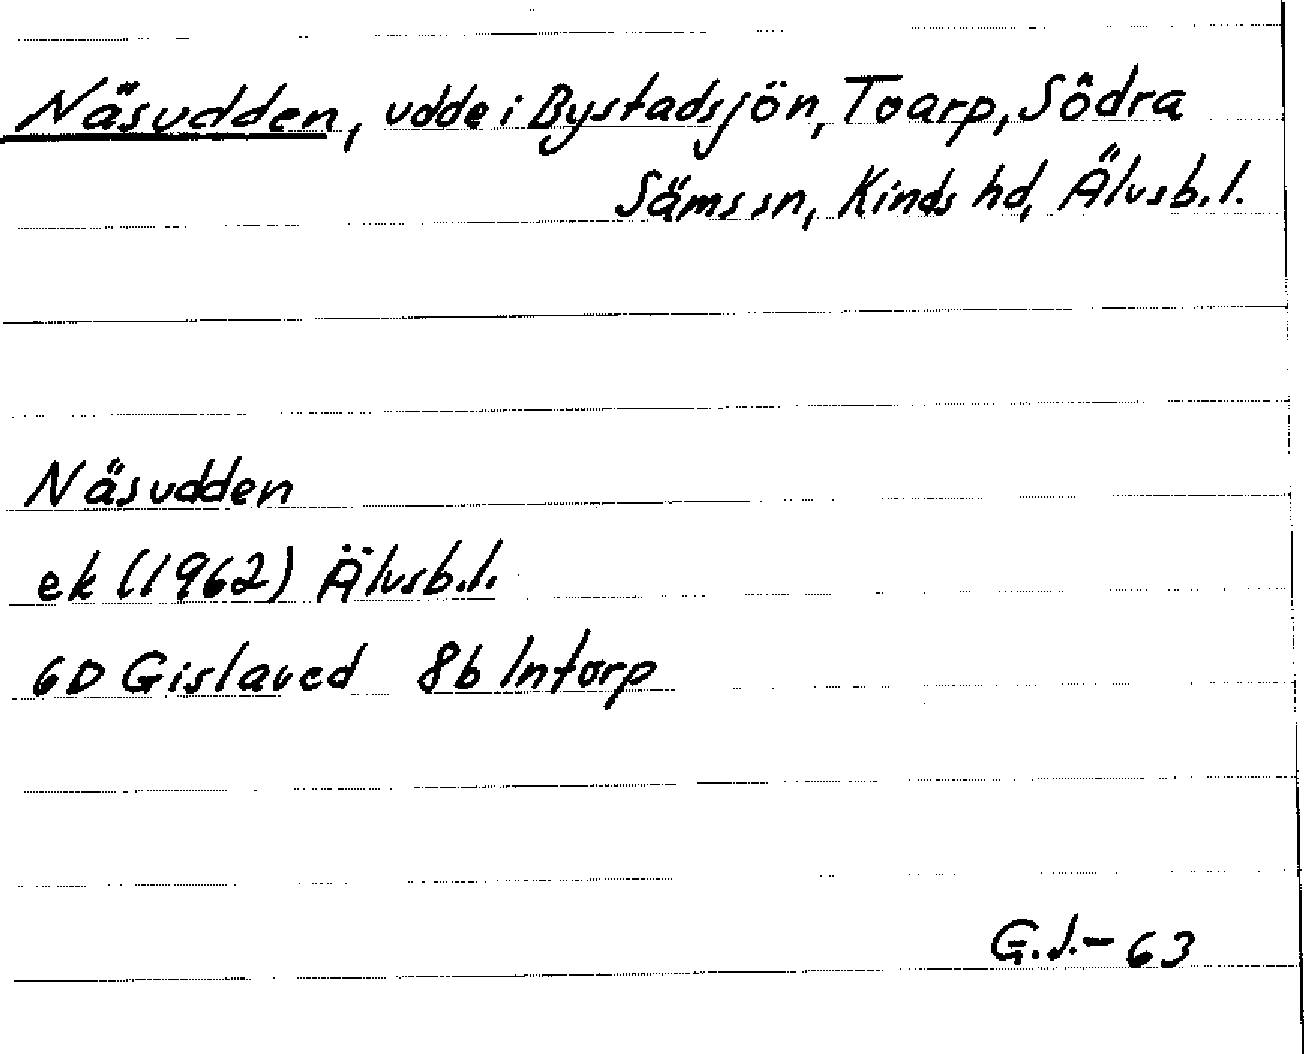 Näsudden, udde i Bystadsjön, Toarp, Södra
Säms sn, Kinds hd, Älvsb.l.
Näsudden
ek (1962) Älvsb.l.
6D Gislaved 8b Intorp
G.J.-63